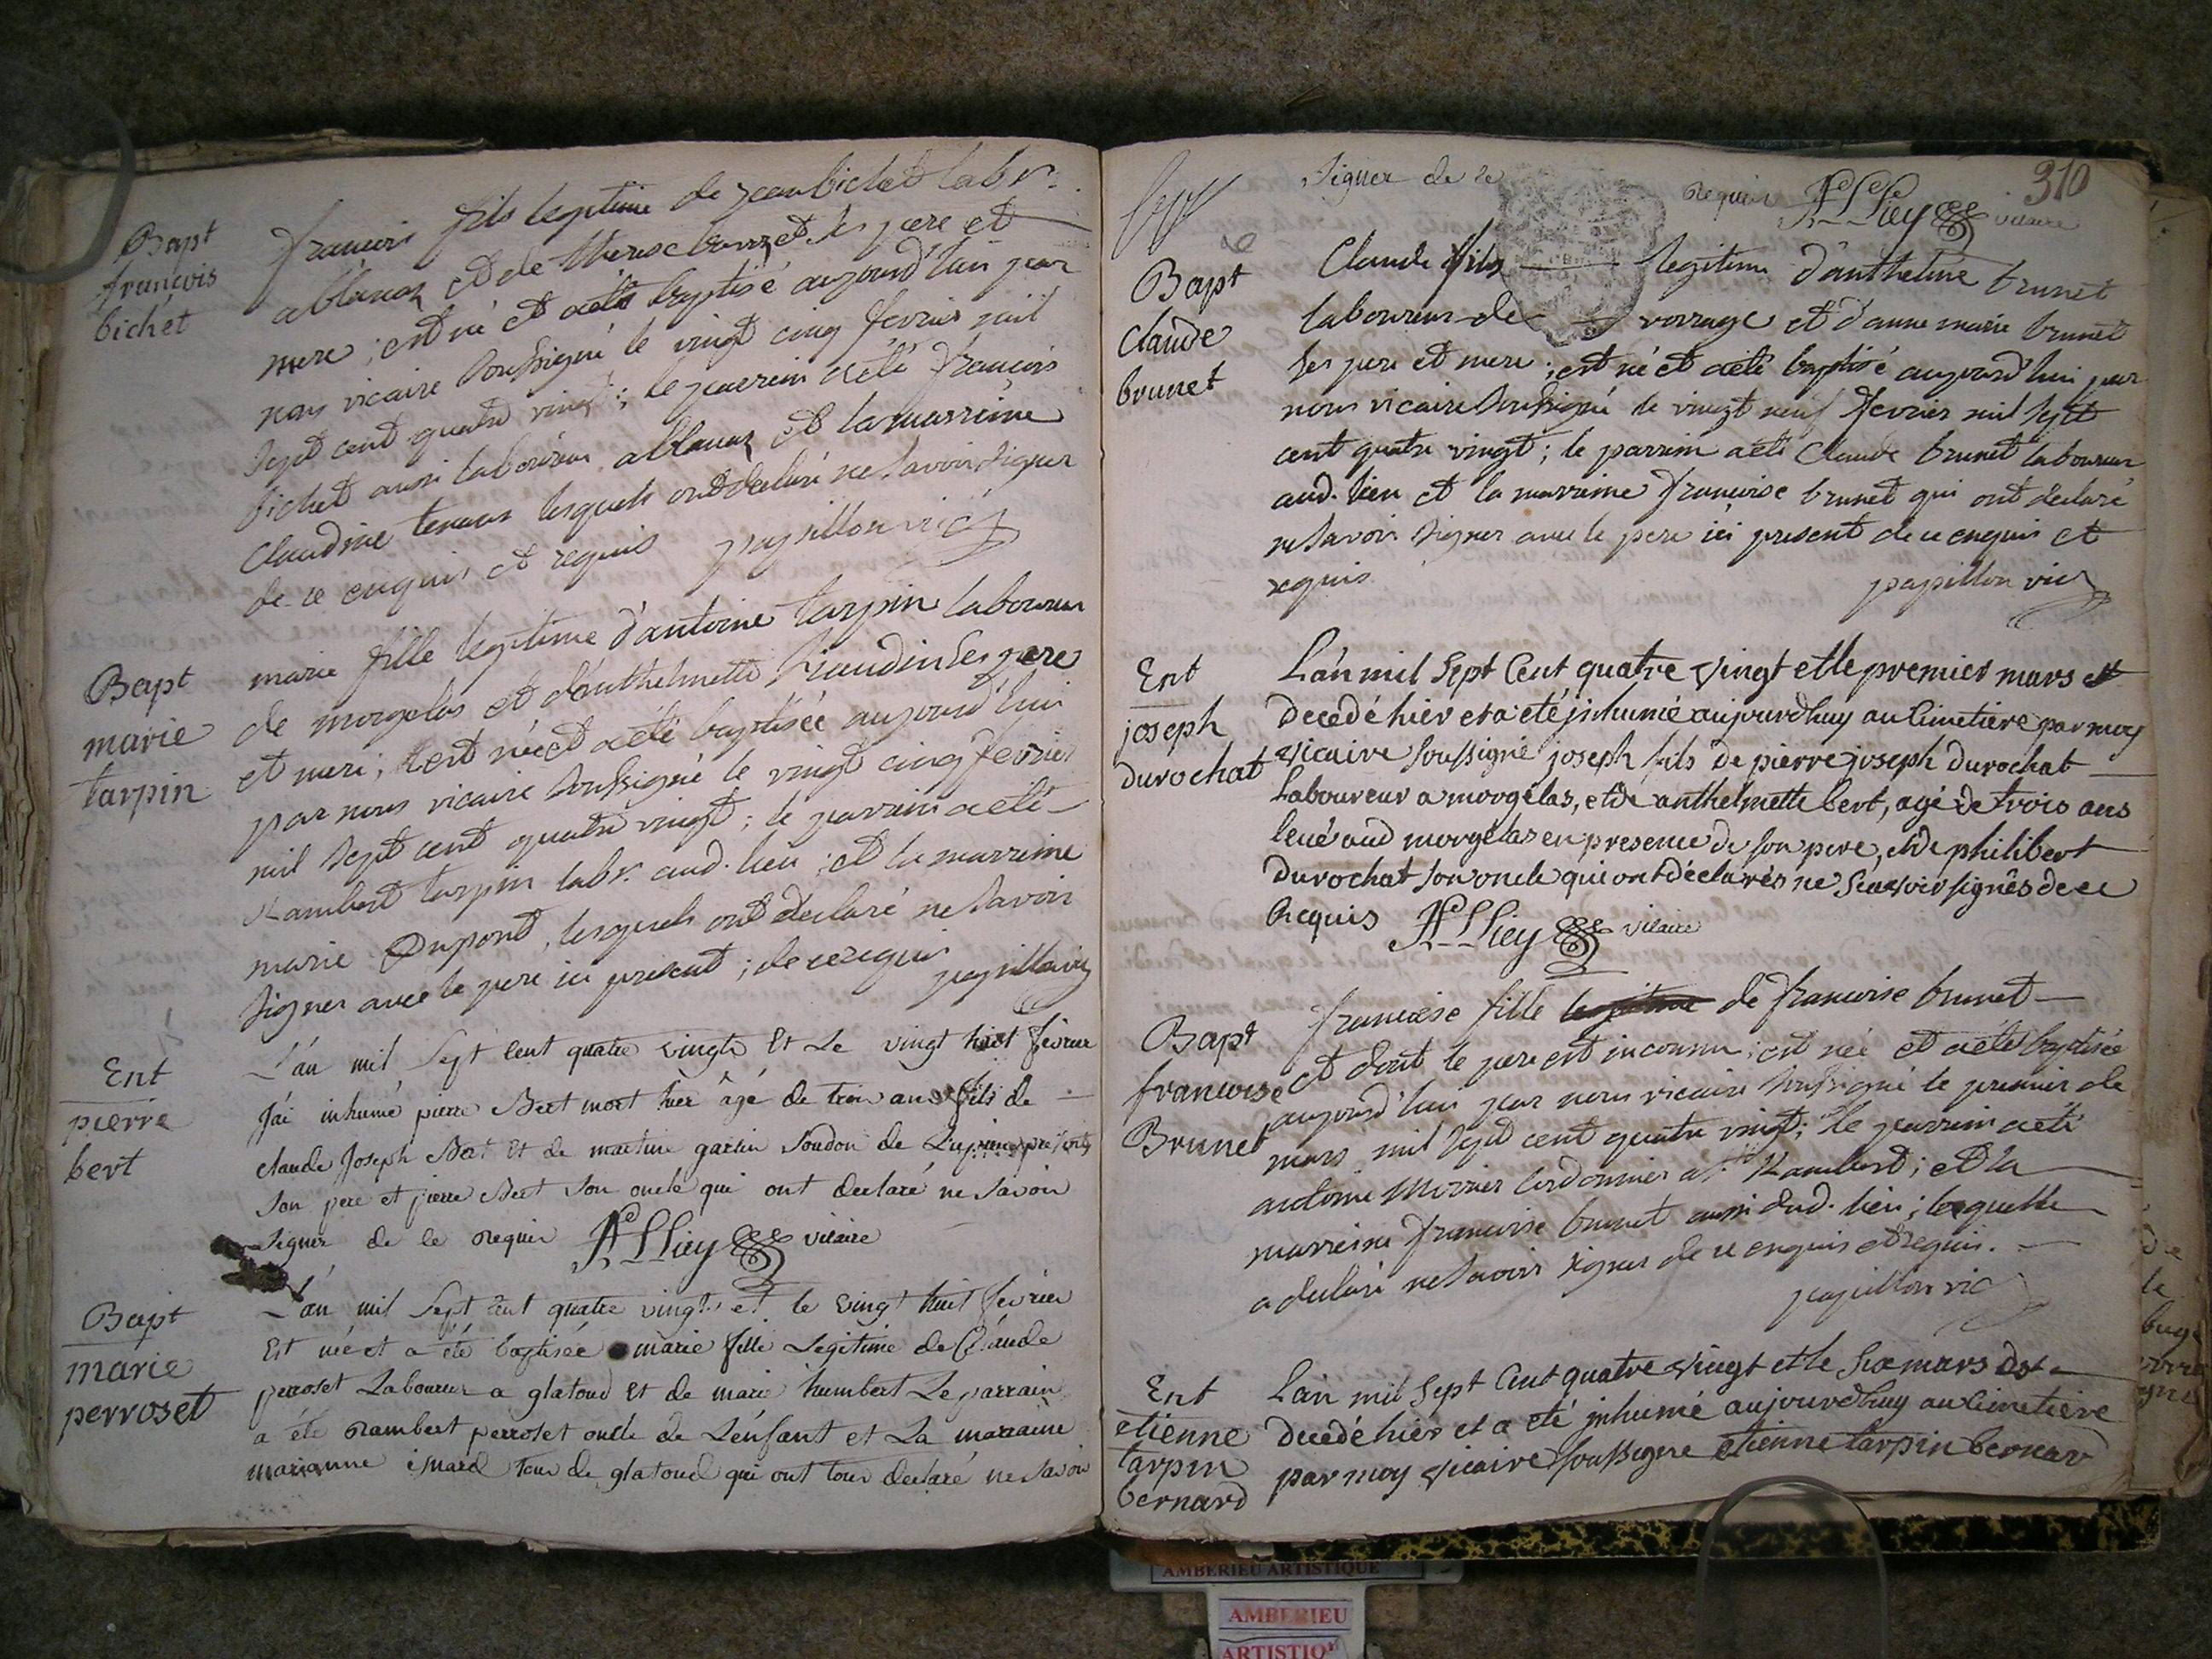 Bapt
francois
bichet
francois fils legitime de jean bichet labr.
a blanaz et de therese ses pere et
mere; est né et a eté baptisé aujourd'hui par
nous vicaire soussigné le vingt cinq fevrier mil
sept cent quatre vingt; le parrein a eté francois
bichet aussi laboureur a blanaz et la marreine
Claudine lesquels ont declaré ne savoir signer
de ce enquis et requis papillon vic
Bapt
marie
tarpin
marie fille legitime d'antoine tarpin laboureur
de morgelas et d'anthelmette ses pere
et mere; est née et a eté baptisée aujourd'hui
par nous vicaire soussigné le vingt cinq fevrier
mil sept cent quatre vingt; le parrain a eté
Rambert tarpin labr. aud. lieu; et la marreine
marie Dupont, lesquels ont declaré ne savoir
signer avec le pere ici present; de ce requis papillon vic
Ent
pierre
bert
L'an mil sept cent quatre vingts Et Le vingt huit fevrier
J'ai inhumé pierre Bert mort hier âgé de trois ans fils de
claude Joseph Bert Et de martine garin
son pere et pierre Bert son oncle qui ont declaré ne savoir
signer de ce requis vicaire
Bapt
marie
perroset
L'an mil sept cent quatre vingts et le vingt huit fevrier
Est née et a été baptisée marie fille Legitime de Claude
perroset Laboureur a glatoud Et de marie humbert Le parrain
a été Rambert perroset oncle de L'enfant et La marraine
marianne tous de glatoud qui ont tous declaré ne savoir
310
signer de ce requis vicaire
Bapt
Claude
brunet
Claude fils legitime d'anthelme brunet
laboureur de vorrage et d'anne marie brunet
ses pere et mere; est né et a eté baptisé aujourd'hui par
nous vicaire soussigné le vingt neuf fevrier mil sept
cent quatre vingt; le parrein a eté Claude brunet laboureur
aud. lieu et la marreine francoise brunet qui ont declaré
ne savoir signer avec le pere ici present de ce enquis et
requis papillon vic
Ent
joseph
durochat
L'an mil sept cent quatre vingt et le premier mars est
decedé hier et a eté inhumé aujourdhuy au cimetiere par moy
vicaire soussigné joseph fils de pierre joseph durochat
laboureur a morgelas, et de anthelmette bert, agé de trois ans
levé aud morgelas en presence de son pere, et de philibert
durochat son oncle qui ont déclarés ne scavoir signés de ce
Requis vicaire
Bapt
francoise
Brunet
francoise fille legitime de francoise brunet
et dont le pere est inconnu; est née et a eté baptisée
aujourd'hui par nous vicaire soussigné le premier de
mars mil sept cent quatre vingt; le parrein a eté
antoine Mornier cordonnier a St. Rambert; et la
marreine francoise brunet aussi dud. lieu; laquelle
a declaré ne savoir signer de ce enquis et requis.
papillon vic
Ent
etienne
tarpin
bernard
L'an mil sept cent quatre vingt et le six mars est
decedé hier et a eté inhumé aujourdhuy au cimetiere
par moy vicaire soussigné etienne tarpin bernar
AMBERIEU ARTISTIQUE
AMBERIEU